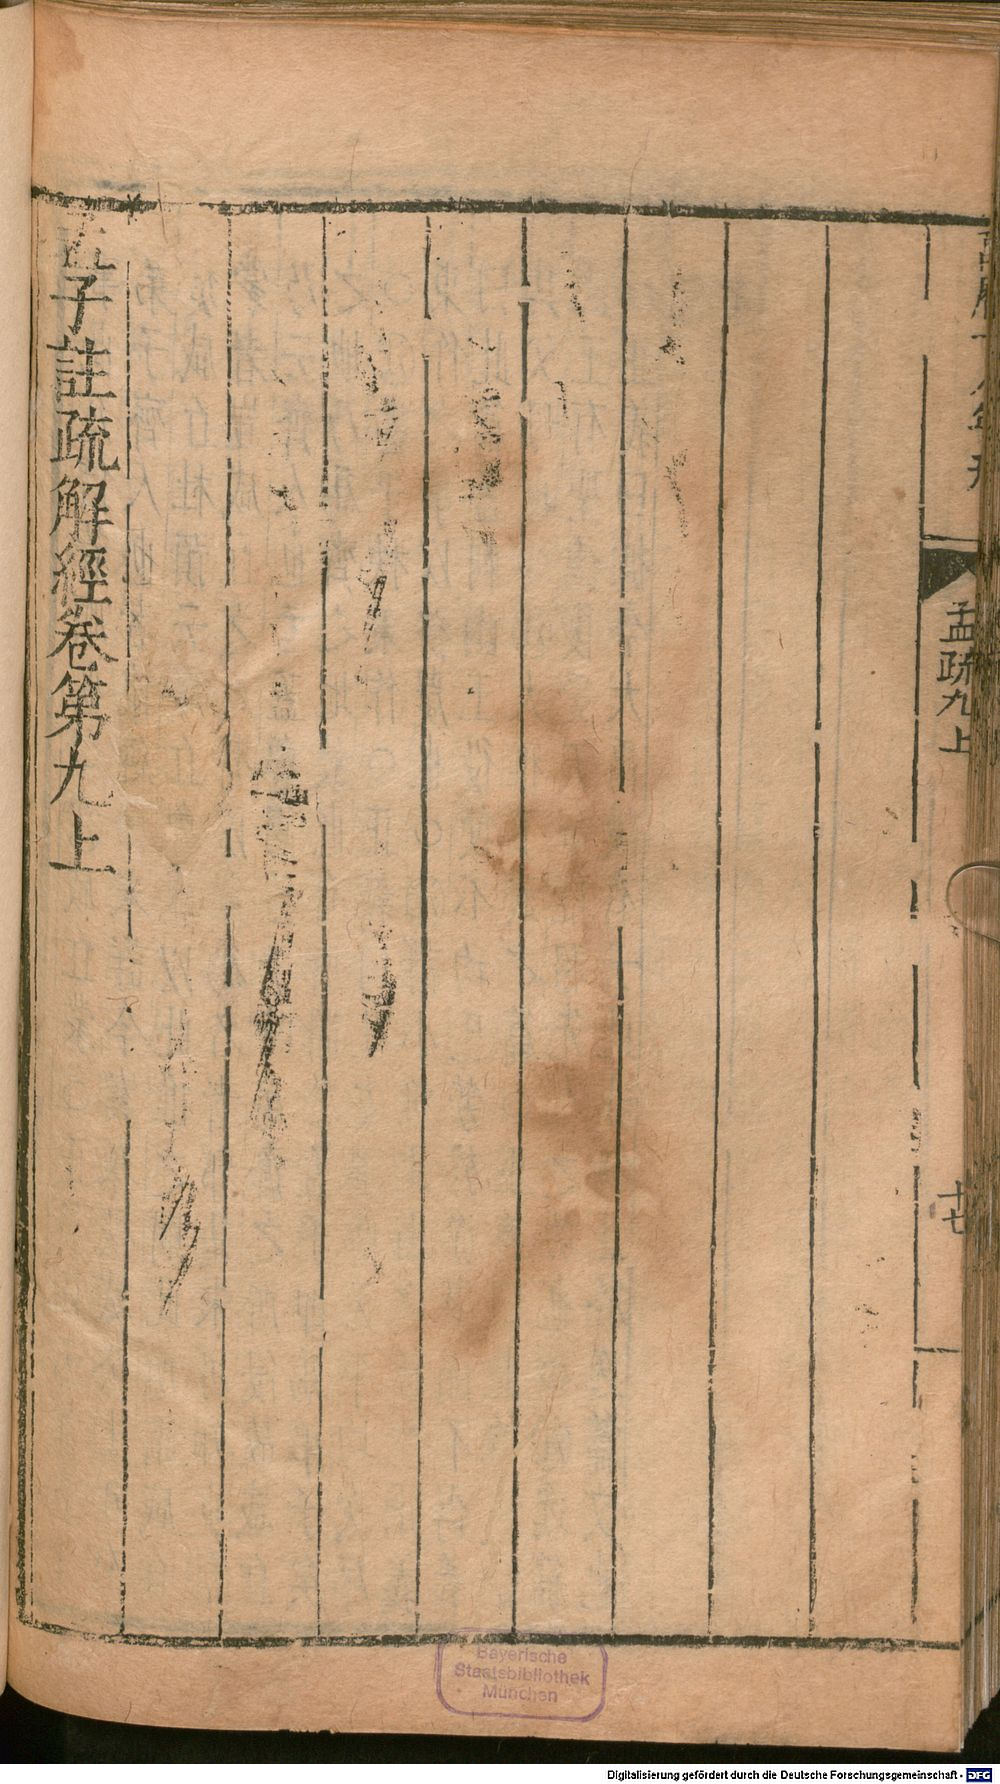 萬曆十八年刊
孟疏九上
十七
孟子註疏解經卷第九上
Bayerische
Staatsbibliothek
München
Digitalisierung gefördert durch die Deutsche Forschungsgemeinschaft - DFG